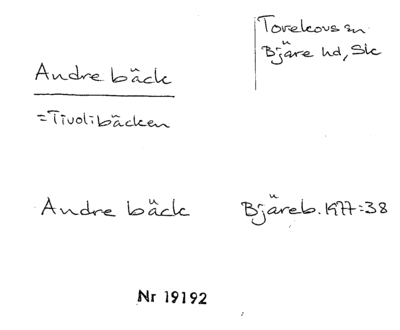 Torekovs sn
Bjäre hd, Sk
Andre bäck
=Tivolibäcken
Andre bäck Bjäreb. 1977:38
Nr 19192